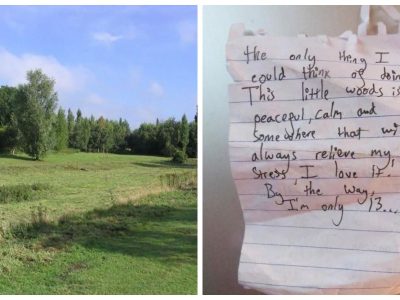 the only thing I
could think of doin
This little woods is
peaceful, calm and
somewhere that wi
always relieve my
stress, I love it.
By the way,
I'm only 13...